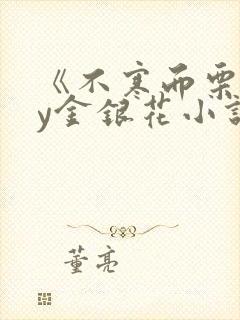 《不寒而栗
y金银花小说
董亮